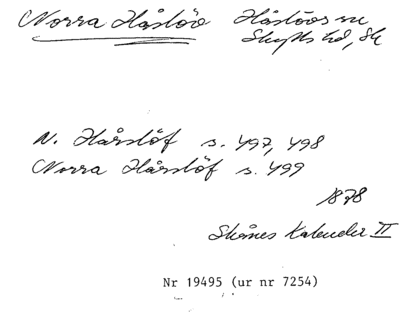 Norra Håslöv Håslövs sn
Skytts hd, Sk
N. Hårslöf s. 497, 498
Norra Hårslöf s. 499
1878
Skånes Kalender II
Nr 19495 (ur nr 7254)